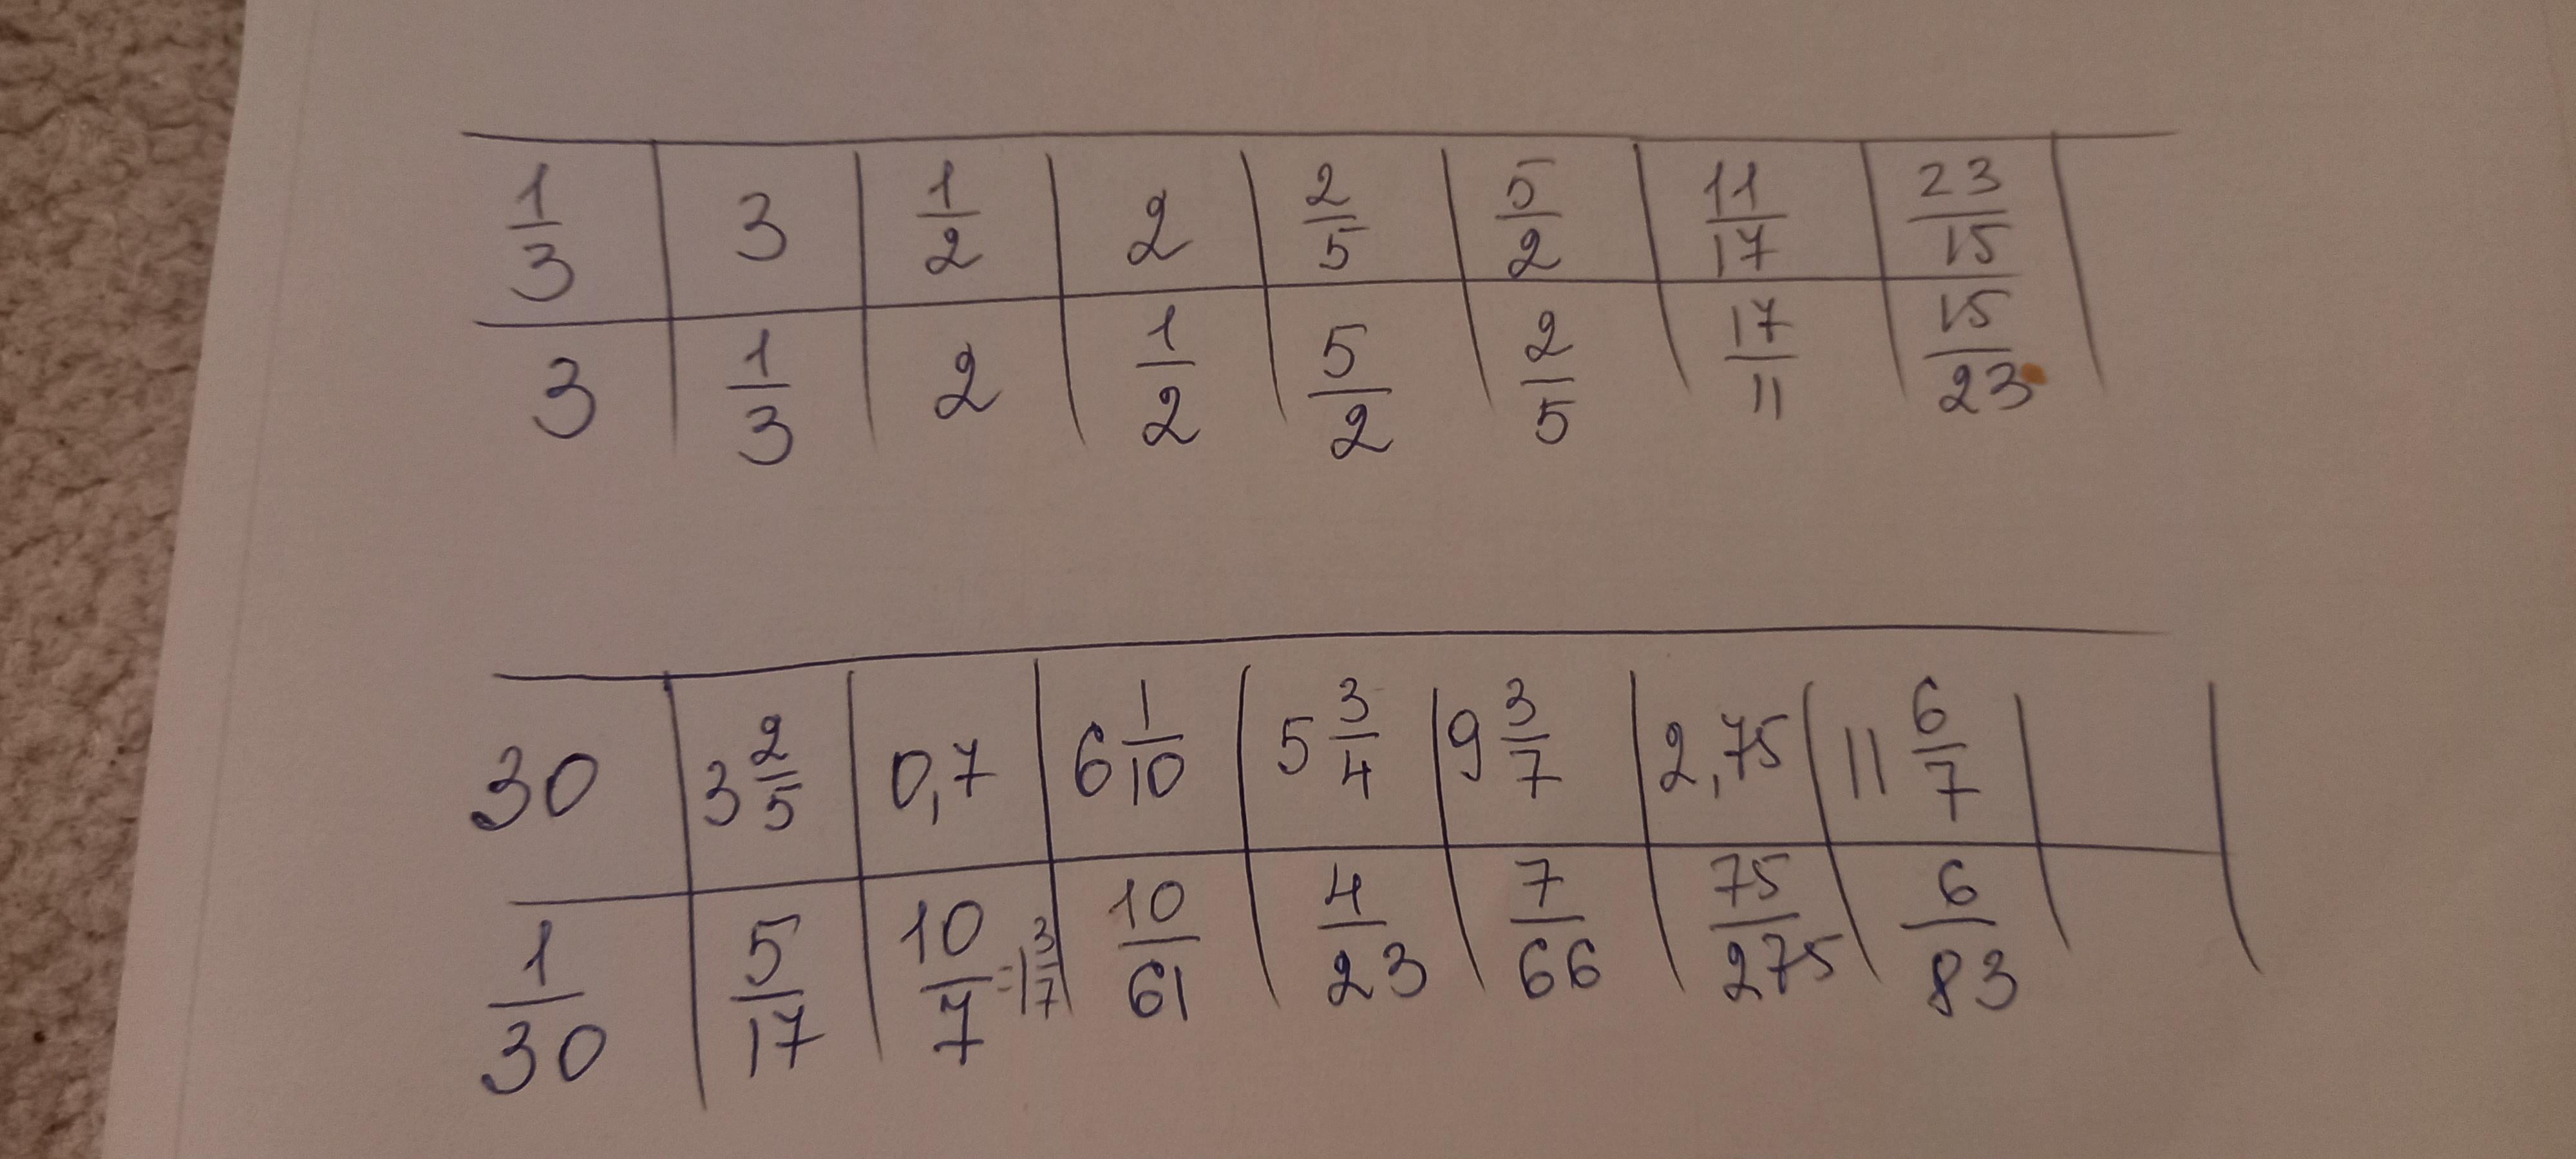 1/3 | 3 | 1/2 | 2 | 2/5 | 5/2 | 11/17 | 23/15
3 | 1/3 | 2 | 1/2 | 5/2 | 2/5 | 17/11 | 15/23
30 | 3 2/5 | 0,7 | 6 1/10 | 5 3/4 | 9 3/7 | 2,75 | 11 6/7
1/30 | 5/17 | 10/7 = 1 3/7 | 10/61 | 4/23 | 7/66 | 75/275 | 6/83